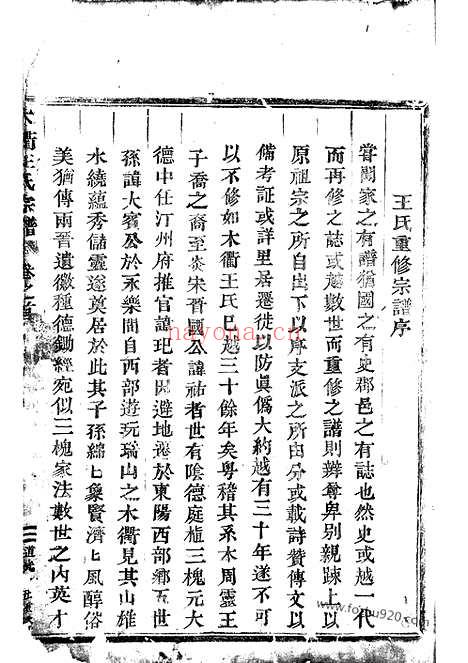 王氏重修宗譜序
嘗聞家之有譜猶國之有史郡邑之有誌也然史或越一代
而再修之誌或越數世而重修之譜則辨尊卑别親踈上以
原祖宗之所自出下以序支派之所由分或載詩贊傳文以
備考証或詳里居遷徙以防眞僞大約越有三十年遂不可
以不修如木衢王氏巳越三十餘年矣粤稽其系本周靈王
子喬之裔至炎宋晋國公諱祐者世有陰德庭植三槐元大
德中任汀州府推官諱玘者因避地遷於東陽西部鄉五世
孫諱大賓公於永樂間自西部遊玩瑞山之木衢見其山雄
水繞蘊秀儲靈遂奠居於此其子孫綿匕象賢濟匕風醇俗
美猶傳兩晉遺徽種德鋤經宛似三槐家法數世之内英才
木衢王氏宗譜
卷之首
nayona.cn
www.foguw920.com